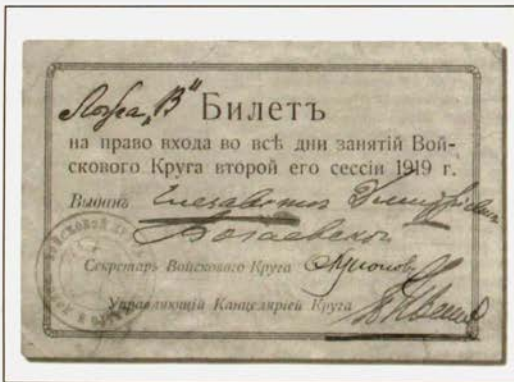 Ложа „В“ Билетъ
на право входа во всѣ дни занятій Вой-
скового Круга второй его сессіи 1919 г.
Выданъ Елизаветѣ Дмитріевнѣ
Богаевской
Секретарь Войскового Круга
Управляющій Канцеляріей Круга